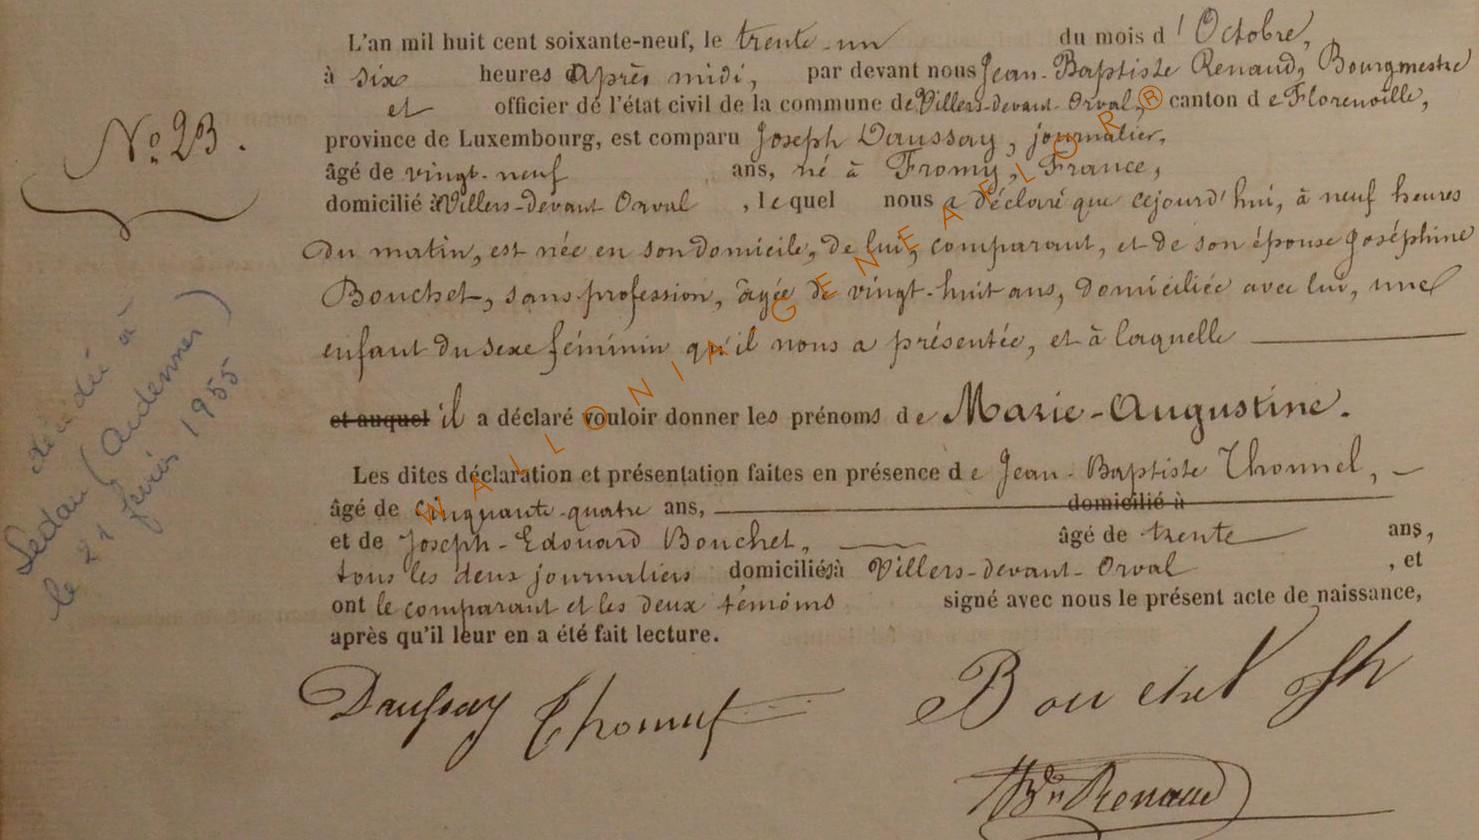 L'an mil huit cent soixante-neuf, le trente-un du mois d'Octobre,
à six heures après midi, par devant nous Jean-Baptiste Renaud, Bourgmestre
et officier de l'état civil de la commune de Villers-devant-Orval, canton de Florenville,
province de Luxembourg, est comparu Joseph Daussay, journalier,
âgé de vingt-neuf ans, né à Fromy, France,
domicilié à Villers-devant Orval, lequel nous a déclaré que cejourd'hui, à neuf heures
du matin, est née en son domicile, de lui, comparant, et de son épouse Joséphine
Bouchet, sans profession, âgée de vingt-huit ans, domiciliée avec lui, une
enfant du sexe féminin qu'il nous a présentée, et à laquelle
et auquel il a déclaré vouloir donner les prénoms de Marie-Augustine.
Les dites déclaration et présentation faites en présence de Jean-Baptiste Thonnel,
âgé de cinquante-quatre ans, domicilié à
et de Joseph-Edouard Bouchet, âgé de trente ans,
tous les deux journaliers domiciliés à Villers-devant-Orval, et
ont le comparant et les deux témoins signé avec nous le présent acte de naissance,
après qu'il leur en a été fait lecture.
Daussay Thonnel Bouchet Jh
Bte Renaud
No 23.
décédée à
Sedan (Ardennes)
le 21 février 1955
WALLONIA GENEAFLOR ®